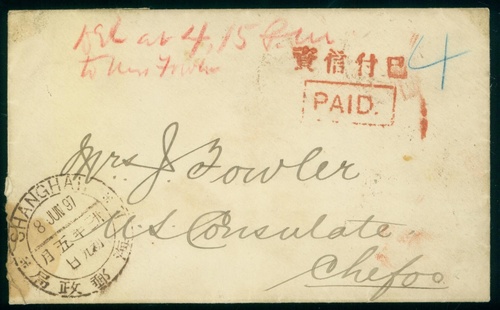 at 4,15 P.m
to Mrs Fowler
資信付已
4
PAID.
Mrs J Fowler
US Consulate
Chefoo
SHANGHAI
8 JUN 97
月五年
日
局政郵